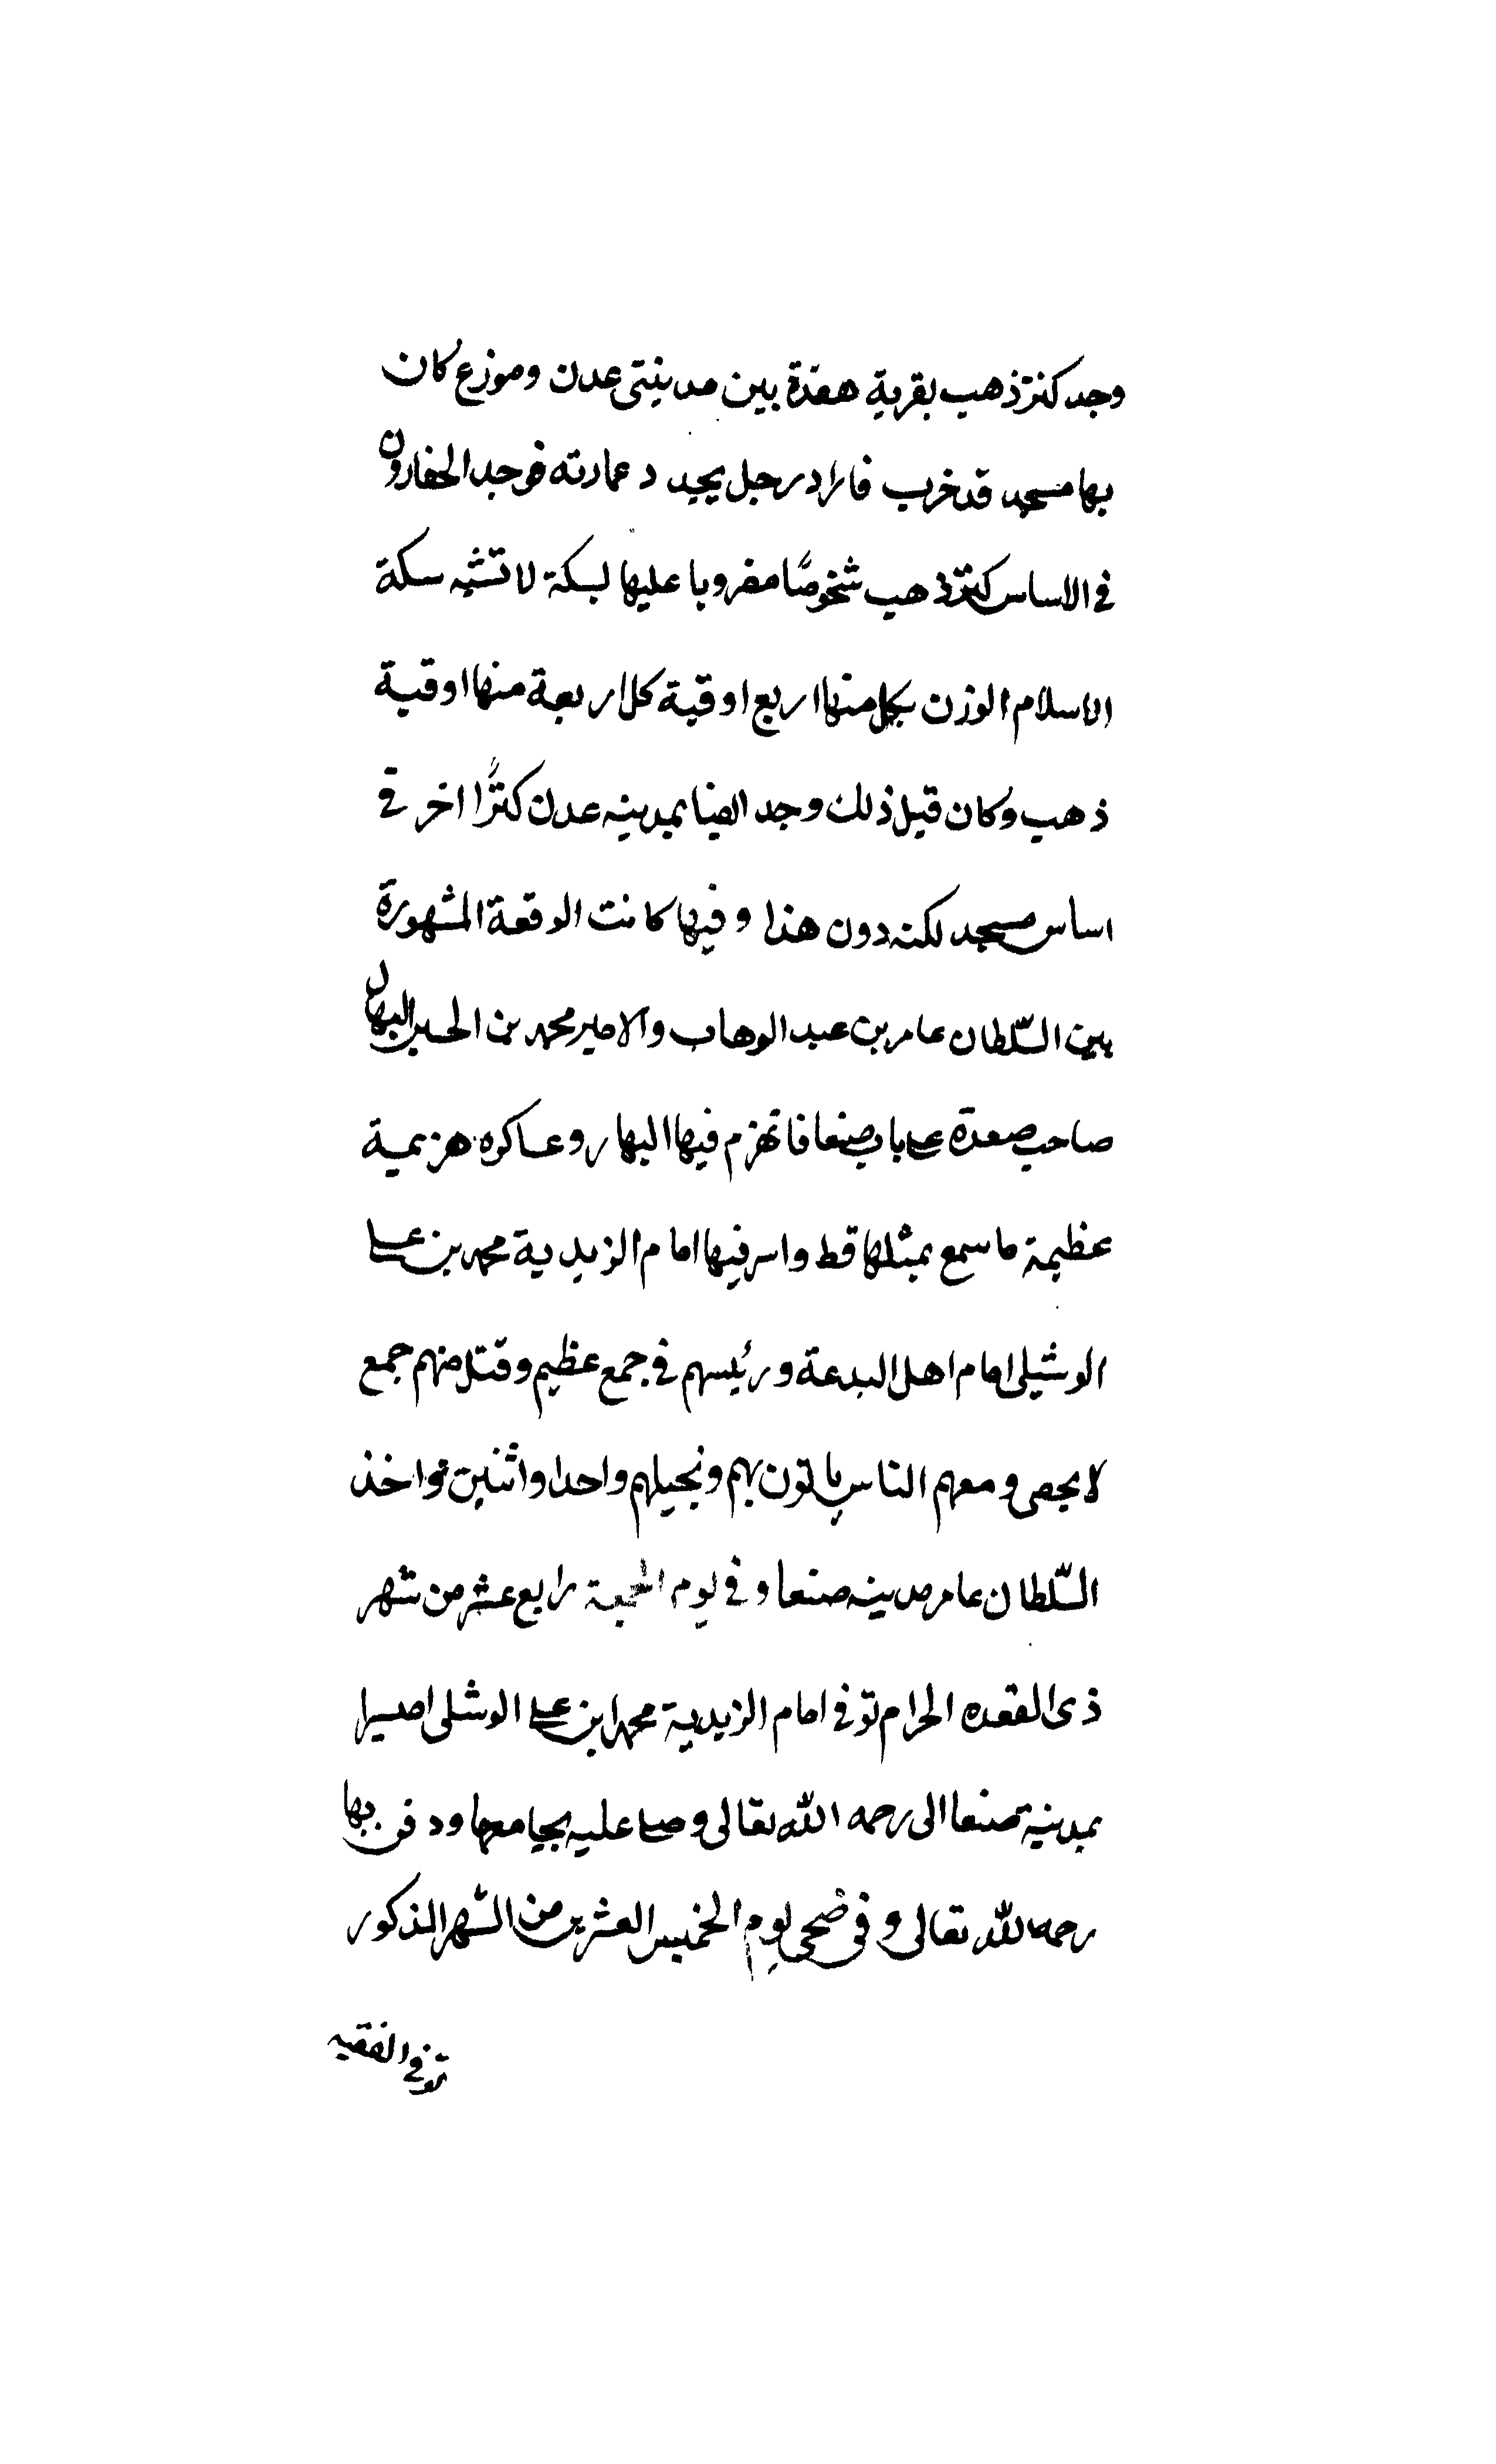 وجد كنز ذهب بقرية هقدة بين مدينتى عدن وموزع كان
بها مسجد قد خرب فاراد رجل يجدد عمارته فوجد الحفارون
في الاساس كنز ذهب شخوصًا مضروبا عليها لسكة لا تشبه سكة
الاسلام الوزن بكل منها اربع اوقية كل اربعة منها اوقية
ذهب وكان قبل ذلك وجد ايضا بمدينه عدن كنزًا اخر في
اساس مسجد لكنه دون هذا وفيها كانت الوقعة المشهورة
بين السّلطان عامر بن عبد الوهاب والامير محمد بن الحسين البهال
صاحب صعدة على باب صنعا فانهزم فيها البهار وعساكره هزيمة
عظيمة ما سمع بمثلها قط واسر فيها امام الزيدية محمد بن على
الوشيلى امام اهل البدعة ورئيسهم في جمع عظيم وقتل منهم جمع
لا يحصى ومعهم الناس ياتون بهم ونجيلهم واحدا واثنين واخذ
السّلطان عامر مدينه صنعا وفي يوم الجمعة رابع عشر من شهر
ذى القعده الحرام توفي امام الزيدية محمد ابن على الوشلى اسيرا
بمدينة صنعا الى رحمه الله تعالى وصلى عليه بجامعها ودفن بها
رحمه الله تعالى وفى ضحى يوم الخميس العشرين من الشّهر المذكور
توفي الفقيه